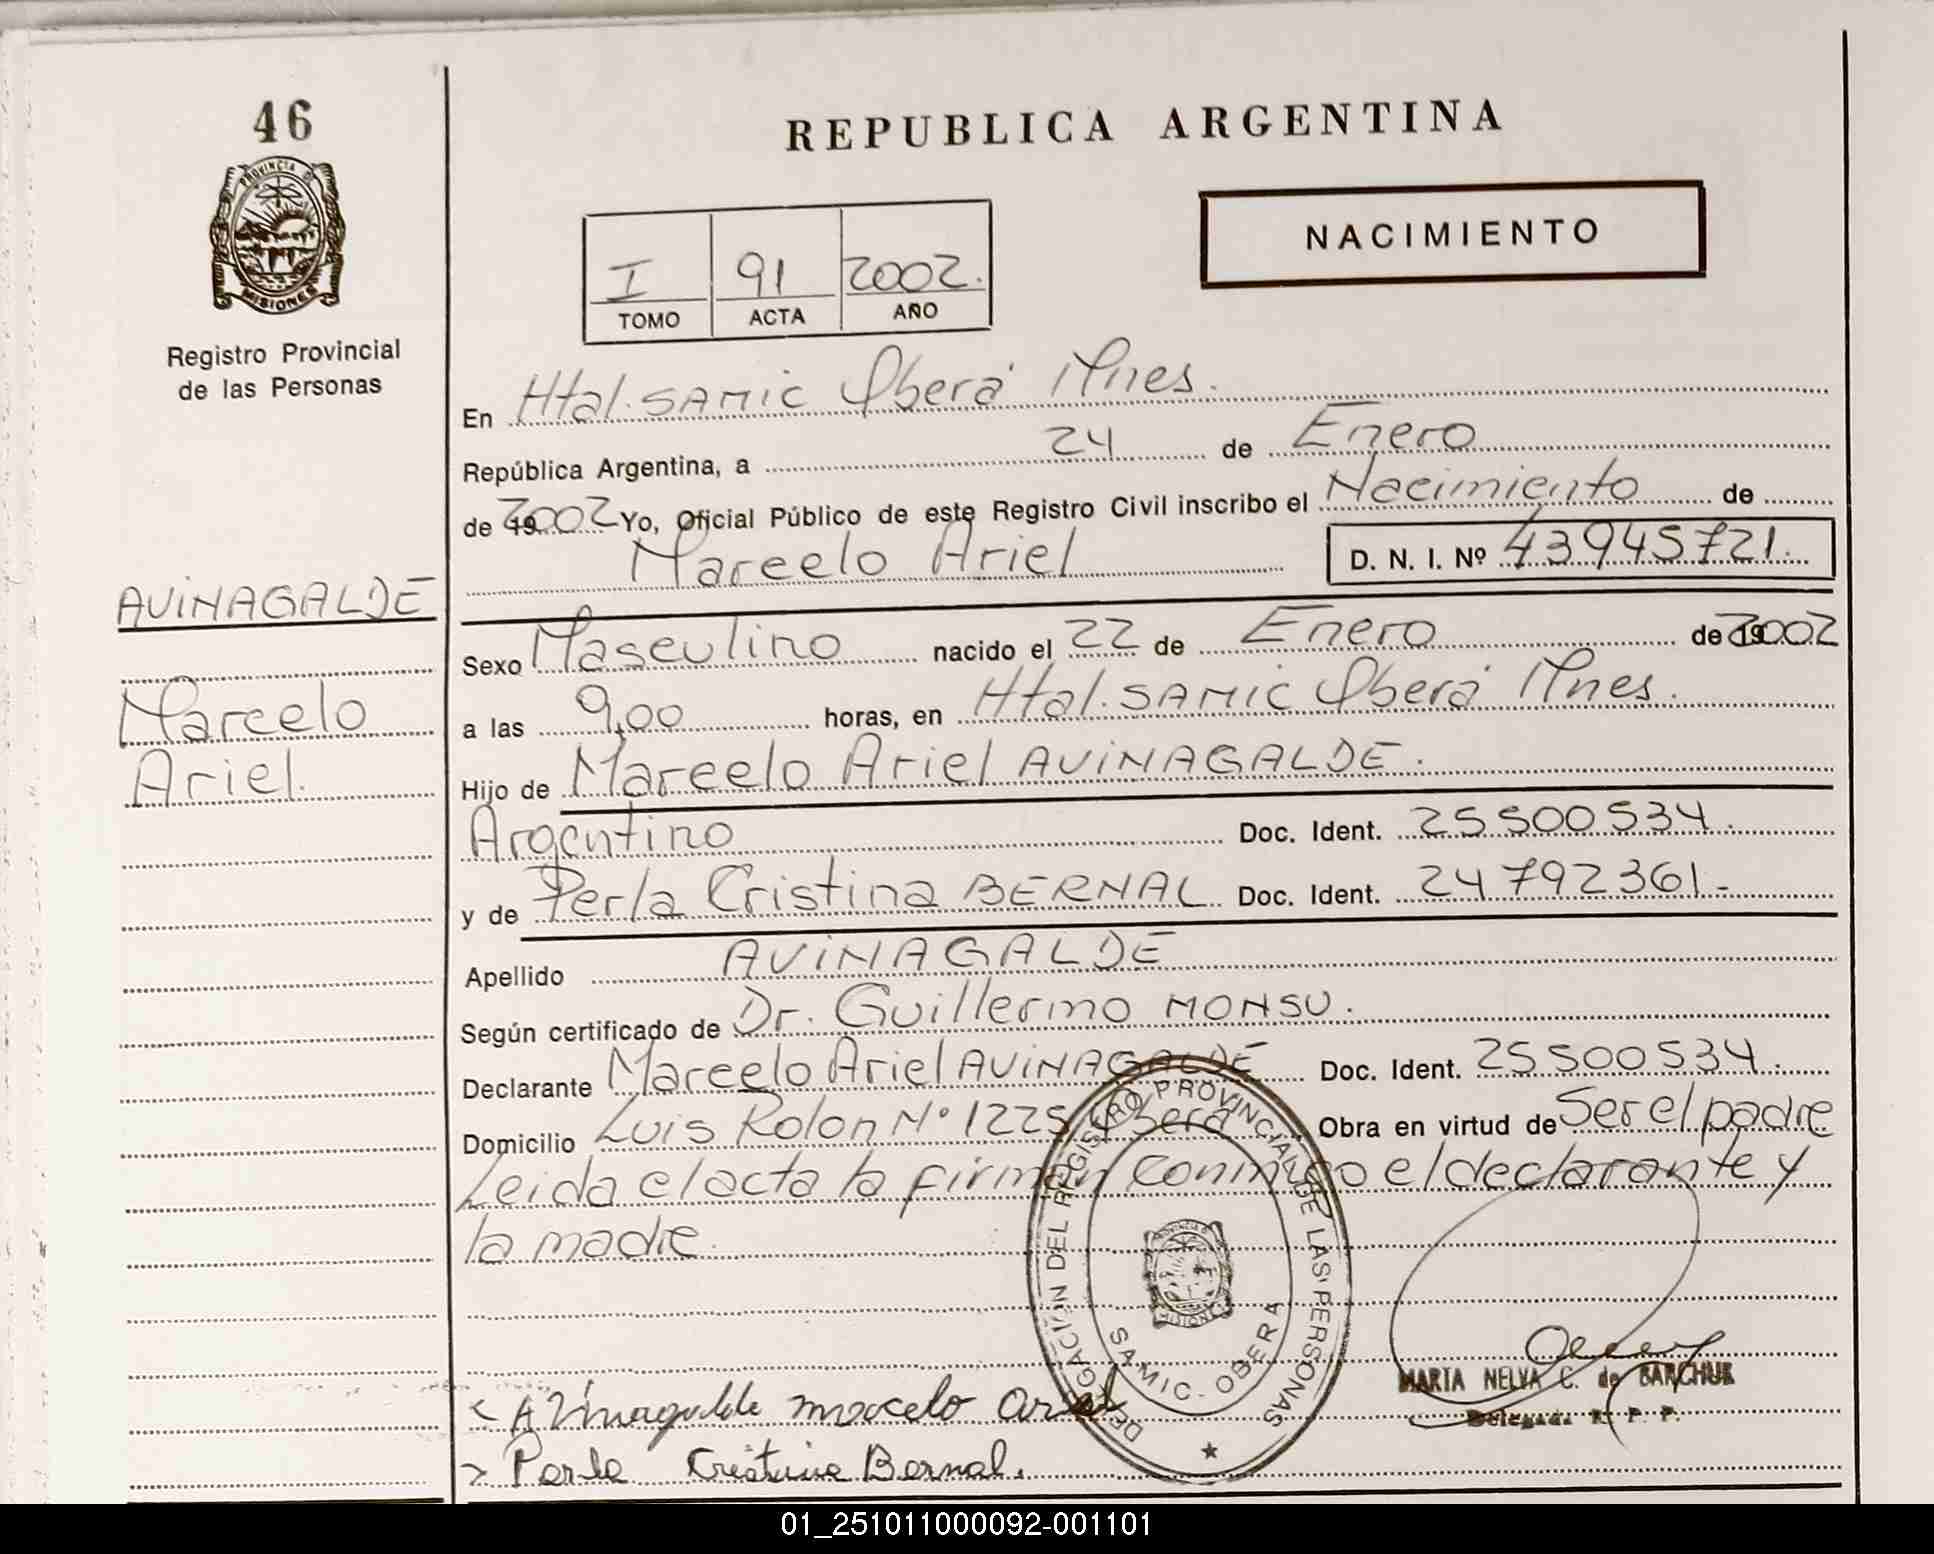 46
REPUBLICA ARGENTINA
PROVINCIA DE
MISIONES
NACIMIENTO
I 91 2002.
TOMO ACTA AÑO
Registro Provincial
de las Personas
En Htal. SAMIC Oberá Mnes.
República Argentina, a 24 de Enero
de 2002 Yo, Oficial Público de este Registro Civil inscribo el Nacimiento de
Marcelo Ariel D. N. I. Nº 43945721.
AVINAGALDE
Marcelo
Ariel.
Sexo Masculino nacido el 22 de Enero de 2002
a las 9,00 horas, en Htal. SAMIC Oberá Mnes.
Hijo de Marcelo Ariel AVINAGALDE.
Argentino Doc. Ident. 25500534.
y de Perla Cristina BERNAL Doc. Ident. 24792361.-
Apellido AVINAGALDE
Según certificado de Dr. Guillermo MONSU.
Declarante Marcelo Ariel AVINAGALDE Doc. Ident. 25500534.
Domicilio Luis Rolon Nº 1225 Oberá Obra en virtud de Ser el padre
Leida el acta la firman conmigo el declarante y
la madre.
DELEGACIÓN DEL REGISTRO PROVINCIAL DE LAS PERSONAS
SAMIC - OBERA
MARTA NELVA C. de BARCHUK
Delegada R. P. P.
Avinagalde marcelo ariel
Perla Cristina Bernal.
01_251011000092-001101